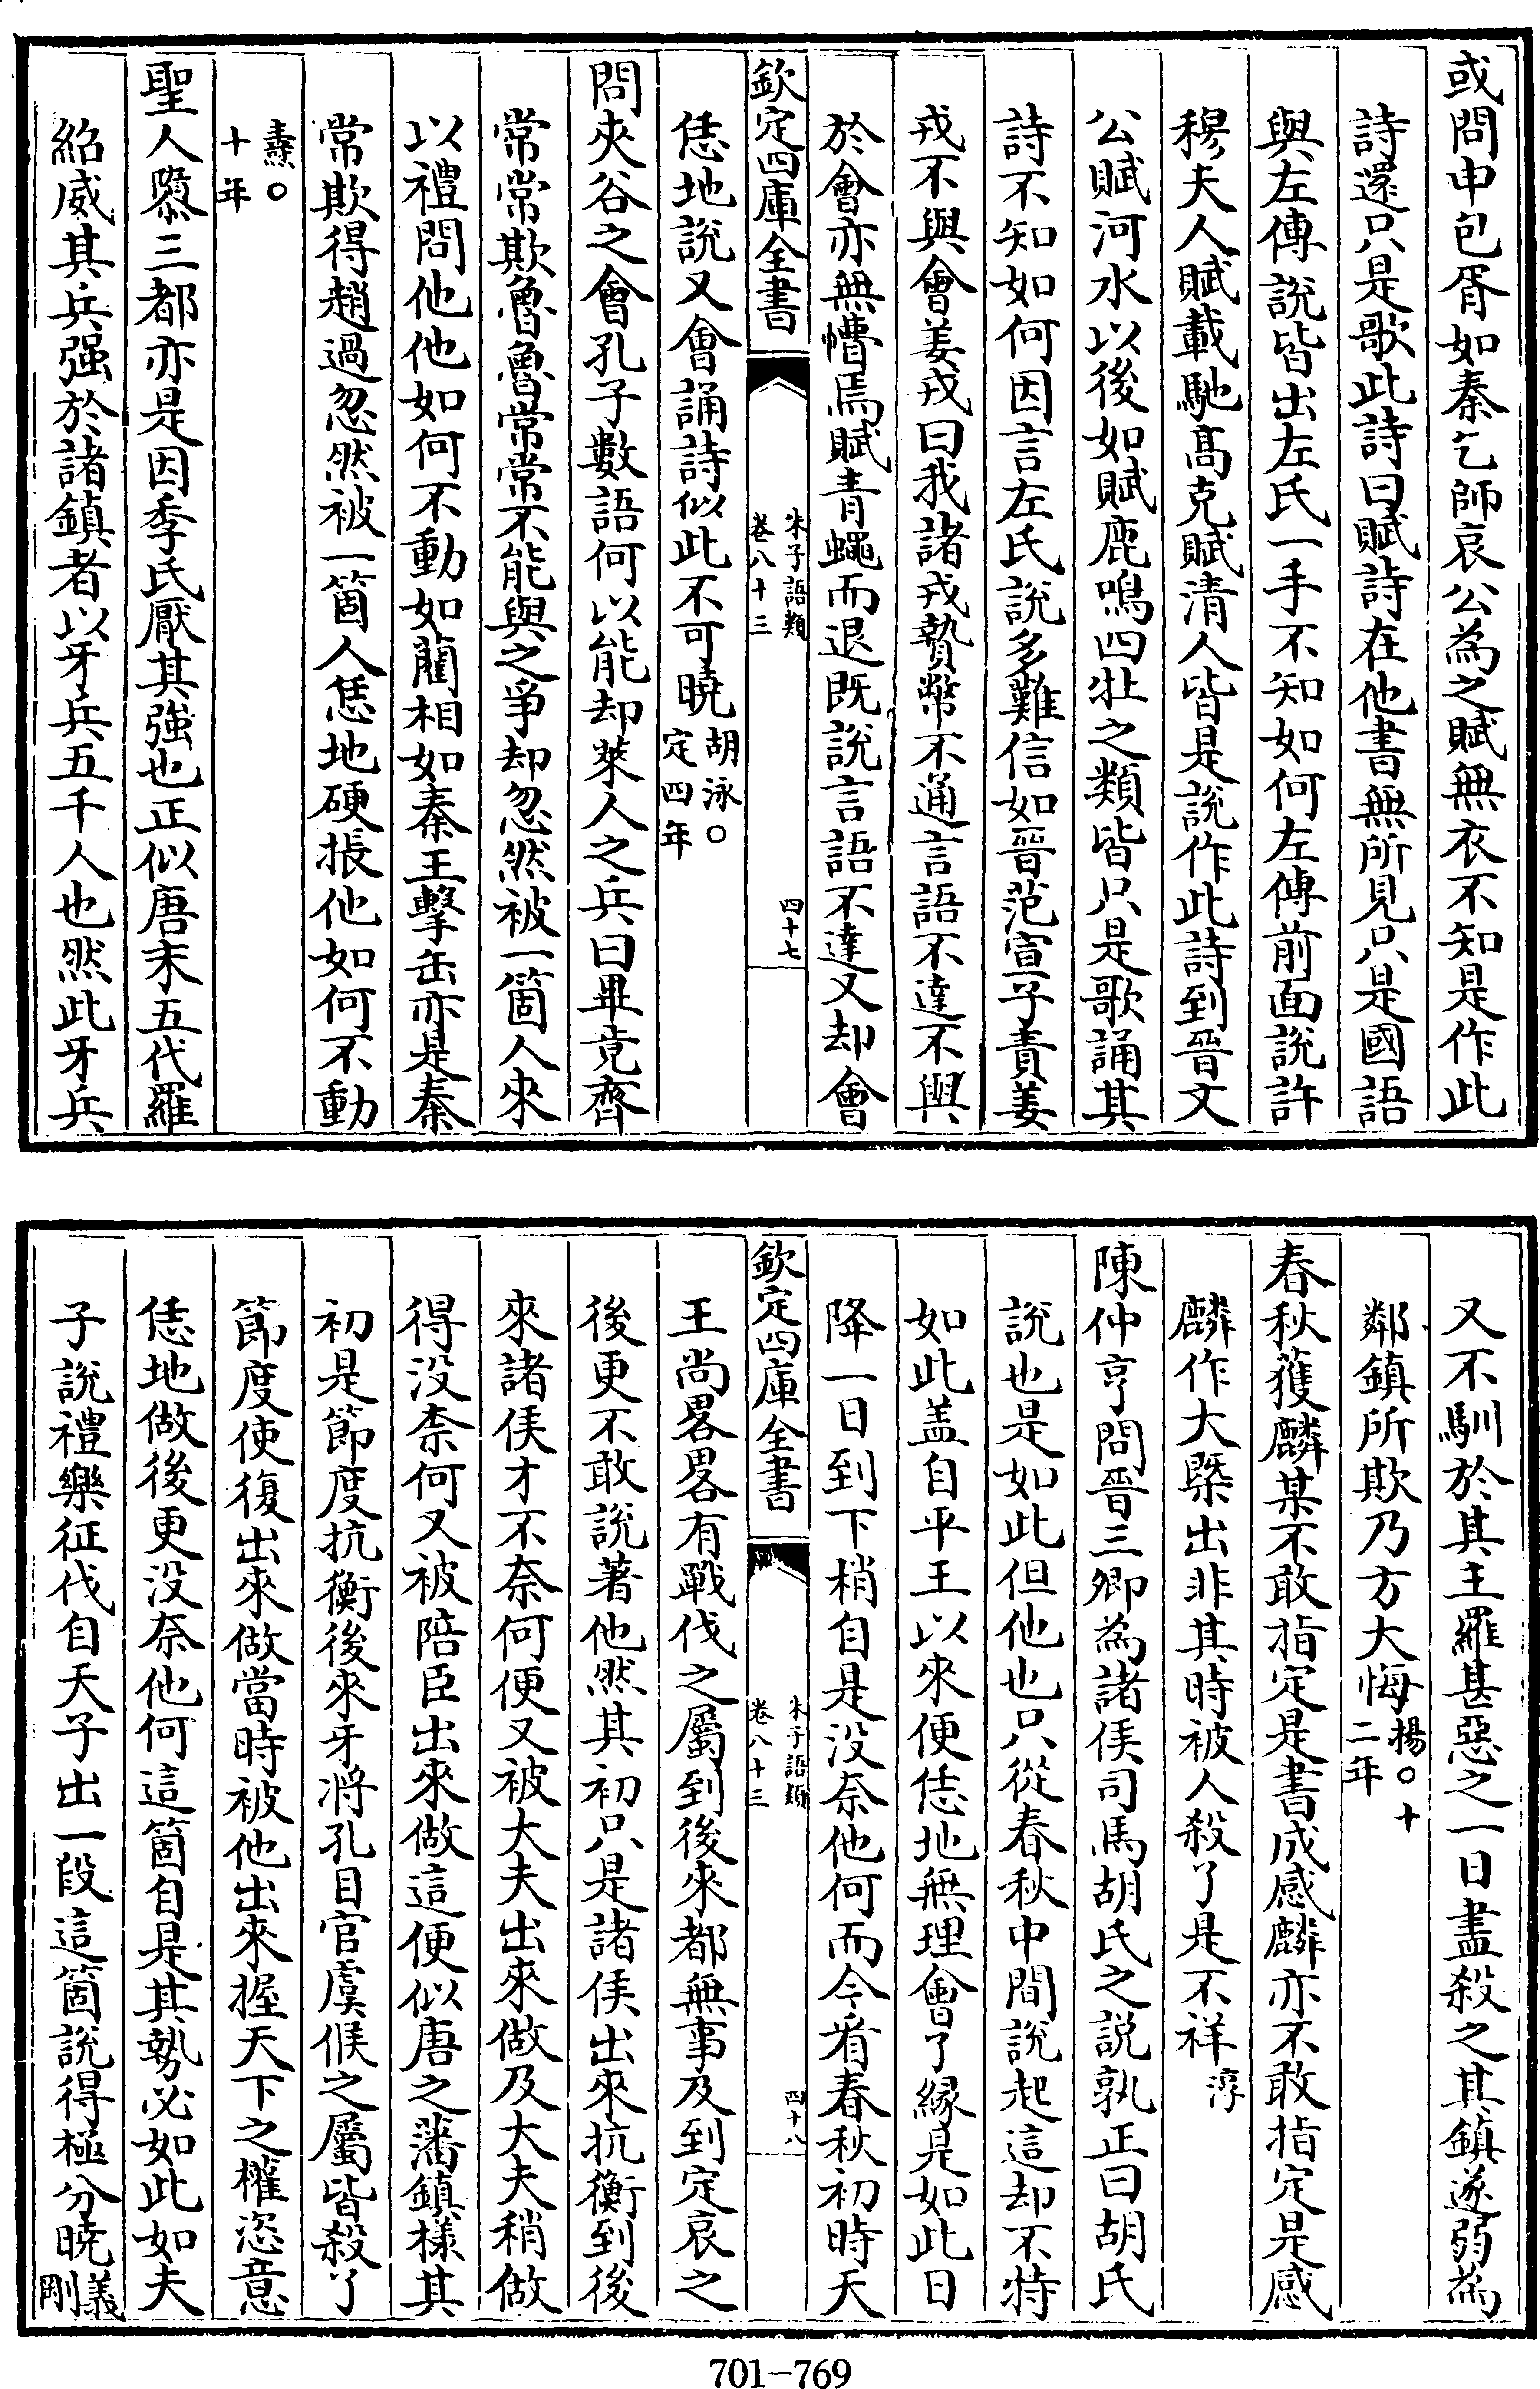 或問申包胥如秦乞師哀公為之賦無衣不知是作此
詩還只是歌此詩曰賦詩在他書無所見只是國語
與左傳說皆出左氏一手不知如何左傳前面說許
穆夫人賦載馳高克賦清人皆是說作此詩到晉文
公賦河水以後如賦鹿鳴四牡之類皆只是歌誦其
詩不知如何因言左氏說多難信如晉范宣子責姜
戎不與會姜戎曰我諸戎贄幣不通言語不達不與
於會亦無懵焉賦青蠅而退既說言語不達又却會
欽定四庫全書
朱子語類
卷八十三
四十七
恁地說又會誦詩似此不可曉胡泳○
定四年
問夾谷之會孔子數語何以能却萊人之兵曰畢竟齊
常常欺魯魯常常不能與之爭却忽然被一箇人來
以禮問他他如何不動如藺相如秦王擊缶亦是秦
常欺得趙過忽然被一箇人恁地硬掁他如何不動
燾○
十年
聖人隳三都亦是因季氏厭其強也正似唐末五代羅
紹威其兵强於諸鎮者以牙兵五千人也然此牙兵
又不馴於其主羅甚惡之一日盡殺之其鎮遂弱為
鄰鎮所欺乃方大悔揚○十
二年
春秋獲麟某不敢指定是書成感麟亦不敢指定是感
麟作大槩出非其時被人殺了是不祥淳
陳仲亨問晉三卿為諸侯司馬胡氏之説孰正曰胡氏
說也是如此但他也只從春秋中間說起這却不特
如此盖自平王以來便恁地無理會了緣是如此日
降一日到下梢自是没奈他何而今看春秋初時天
欽定四庫全書
朱子語類
卷八十三
四十八
王尚畧畧有戰伐之屬到後來都無事及到定哀之
後更不敢說著他然其初只是諸侯出來抗衡到後
來諸侯才不奈何便又被大夫出來做及大夫稍做
得没柰何又被陪臣出來做這便似唐之藩鎮樣其
初是節度抗衡後來牙將孔目官虞候之屬皆殺了
節度使復出來做當時被他出來握天下之權恣意
恁地做後更没奈他何這箇自是其勢必如此如夫
子說禮樂征伐自天子出一段這箇說得極分曉義
剛
701—769